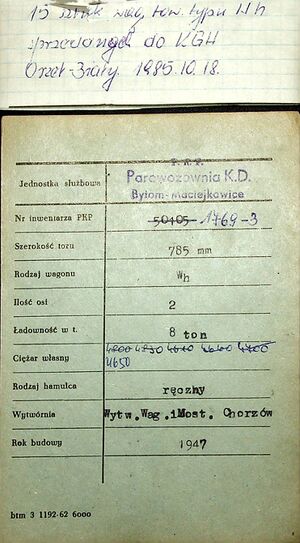 15 sztuk wag. tow. typu Wh
sprzedanych do KGH
Orzeł-Biały. 1985.10.18.
P.K.P.
Jednostka służbowa Parowozownia K.D.
Bytom-Maciejkowice
Nr inwentarza PKP 50105 1769-3
Szerokość toru 785 mm
Rodzaj wagonu Wh
Ilość osi 2
Ładowność w t. 8 ton
Ciężar własny 4800 4830 4610 4640 4700
4650
Rodzaj hamulca ręczny
Wytwórnia Wytw.Wag.iMost. Chorzów
Rok budowy 1947
btm 3 1192-62 6000